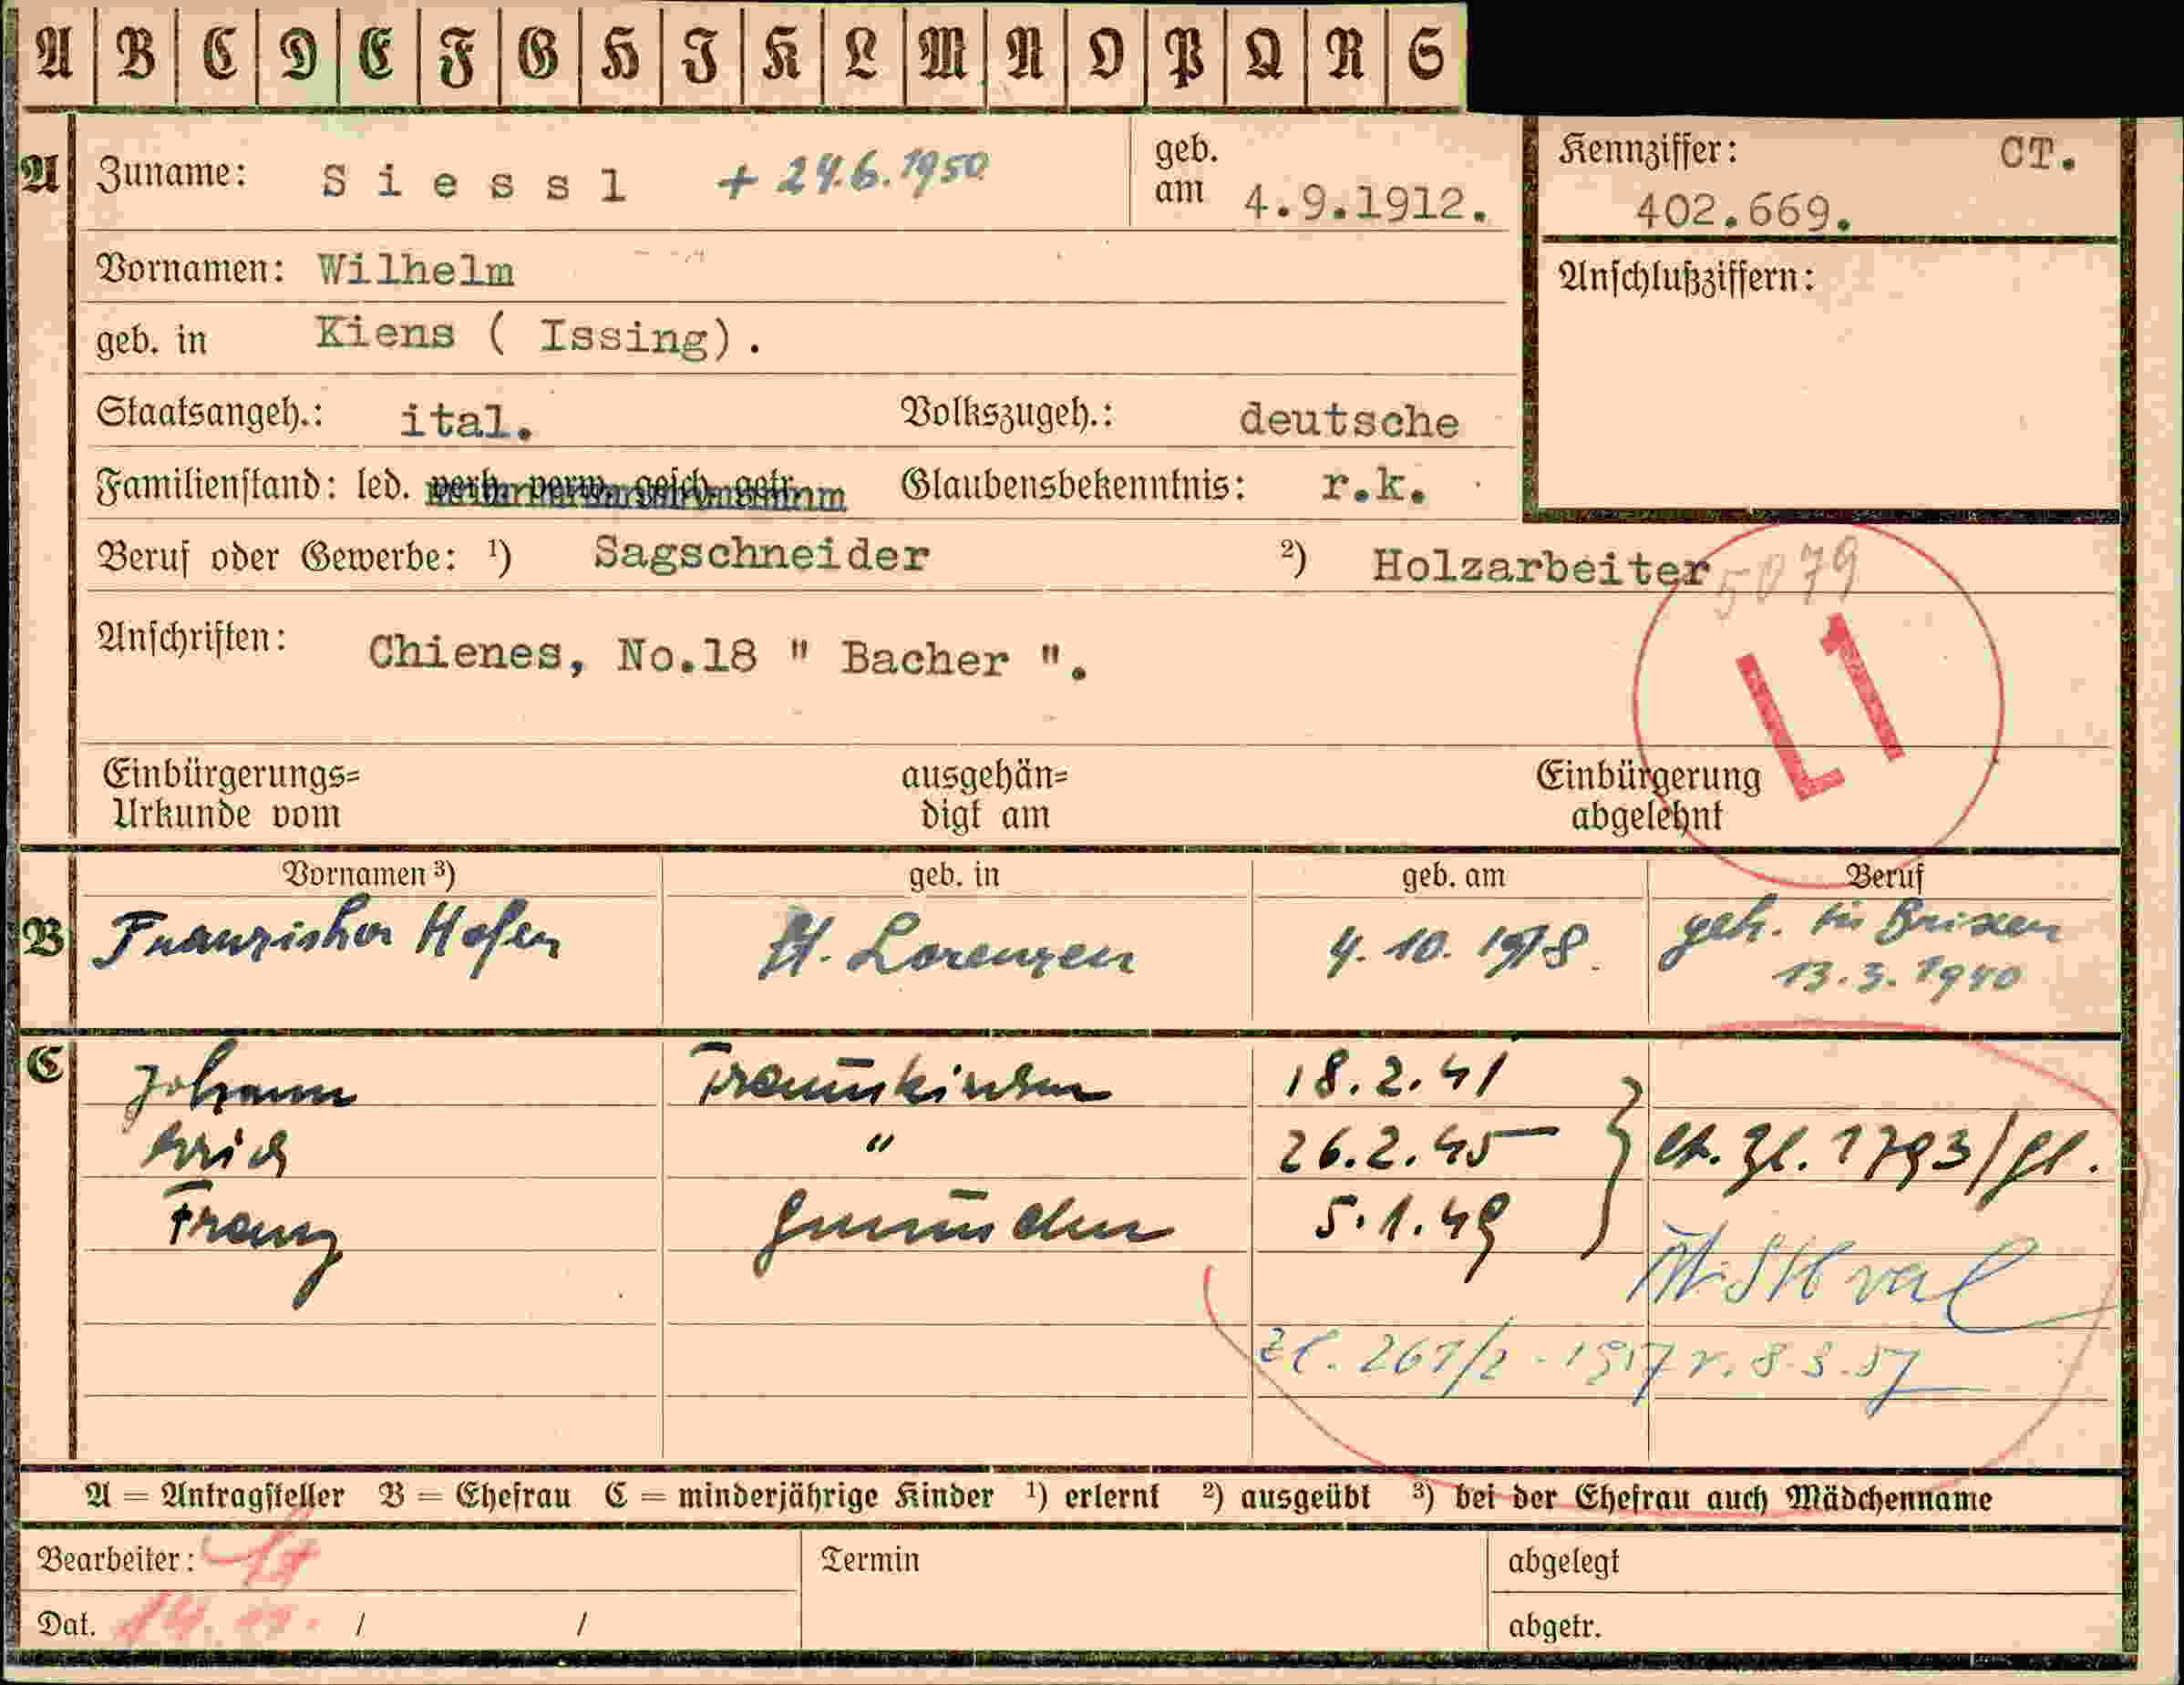 A B C D E F G H I K L M N O P Q R S
A Zuname: Siessl + 24.6.1950 geb. am 4.9.1912. Kennziffer: CT. 402.669.
Vornamen: Wilhelm Anschlußziffern:
geb. in Kiens ( Issing).
Staatsangeh.: ital. Volkszugeh.: deutsche
Familienstand: led. verh. verw. gesch. getr. Glaubensbekenntnis: r.k.
Beruf oder Gewerbe: ¹) Sagschneider ²) Holzarbeiter
5079
L1
Anschriften: Chienes, No.18 " Bacher ".
Einbürgerungs= ausgehän= Einbürgerung
Urkunde vom digt am abgelehnt
Vornamen ³) geb. in geb. am Beruf
B Franziska Hofer St. Lorenzen 4. 10. 1918. geh. in Brixen
13.3.1940
C Johann Traunkirchen 18.2.41
Erich " 26.2.45 Zl. 1793/
Franz Gmunden 5.1.49
Zl. 261/2 - 1957 v. 8.3.57
A = Antragsteller B = Ehefrau C = minderjährige Kinder ¹) erlernt ²) ausgeübt ³) bei der Ehefrau auch Mädchenname
Bearbeiter: Termin abgelegt
Dat. / / abgetr.